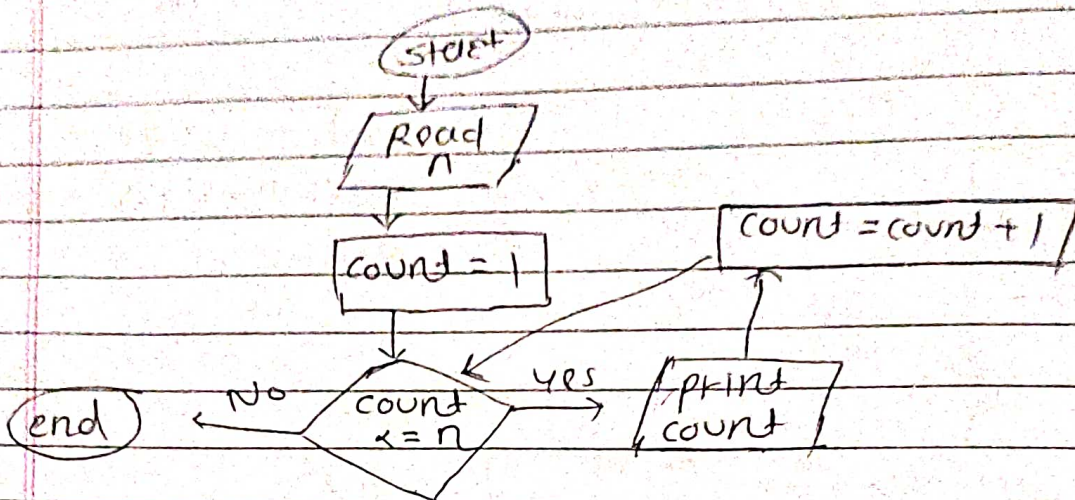 start
Read
n
count = 1
count = count + 1
No
count
<= n
yes
print
count
end